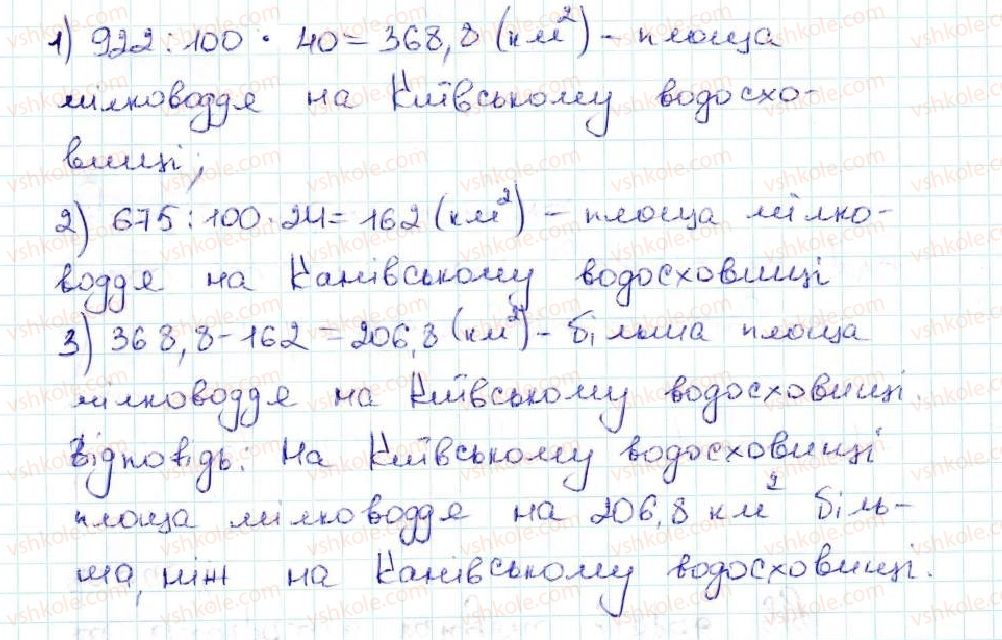 1) 922 : 100 · 40 = 368,8 (км²) – площа
мілководдя на Київському водосхо-
вищі;
2) 675 : 100 · 24 = 162 (км²) – площа мілко-
воддя на Канівському водосховищі
3) 368,8 – 162 = 206,8 (км²) – більша площа
мілководдя на Київському водосховищі.
Відповідь: на Київському водосховищі
площа мілководдя на 206,8 км² біль-
ша, ніж на Канівському водосховищі.